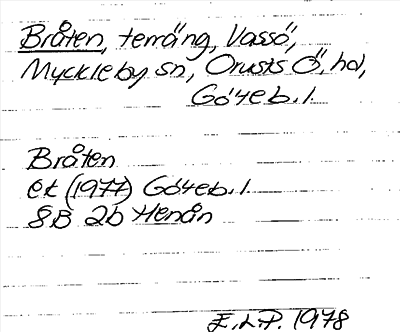 Bråten, terräng, Vassö,
Myckleby sn, Orusts Ö, hd,
Göteb. l.
Bråten
ek (1977) Göteb. l.
8B 2b Henån
E.L.P. 1978